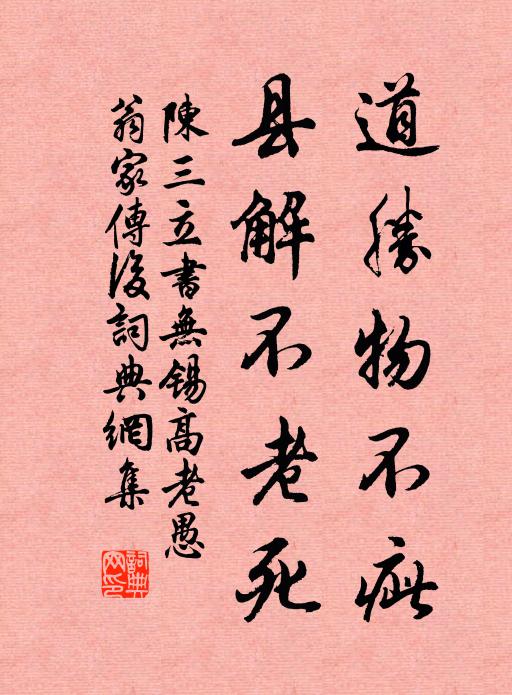 道勝物不疵
县解不老死
陳三立書無锡高老愚
翁家傳後詞典網集
詞典
网印